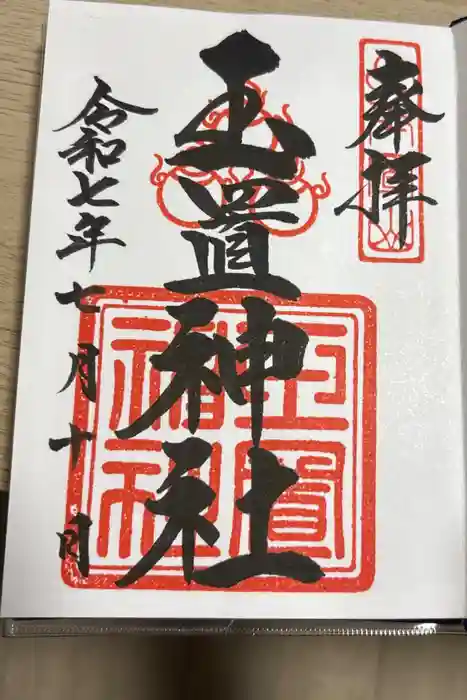 奉拝
玉置神社
令和七年七月十日
玉置神社